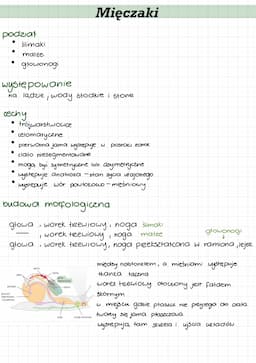 Mięczaki
podział
• ślimaki
• małże
• głowonogi
występowanie
na lądzie, wody słodkie i słone
cechy
• trójwarstwowce
• celomatyczne
• pierwotna jama występuje w postaci zatok
• ciało niesegmentowane
• mogą być symetryczne lub asymetryczne
• występuje
• występuje wór powłokowo-mięśniowy
budowa morfologiczna
głowa, worek trzewiowy, noga ślimaki
, worek trzewiowy, noga małże głowonogi
głowa, worek trzewiowy, noga przekształcona w ramiona, lejek
między nabłonkiem, a mięśniami występuje
tkanka łączna
worek trzewiowy otoczony jest fałdem
skórnym
w miejscu gdzie płaszcz nie przylega do ciała
tworzy się jama płaszczowa
występują tam skrzela i ujścia układów